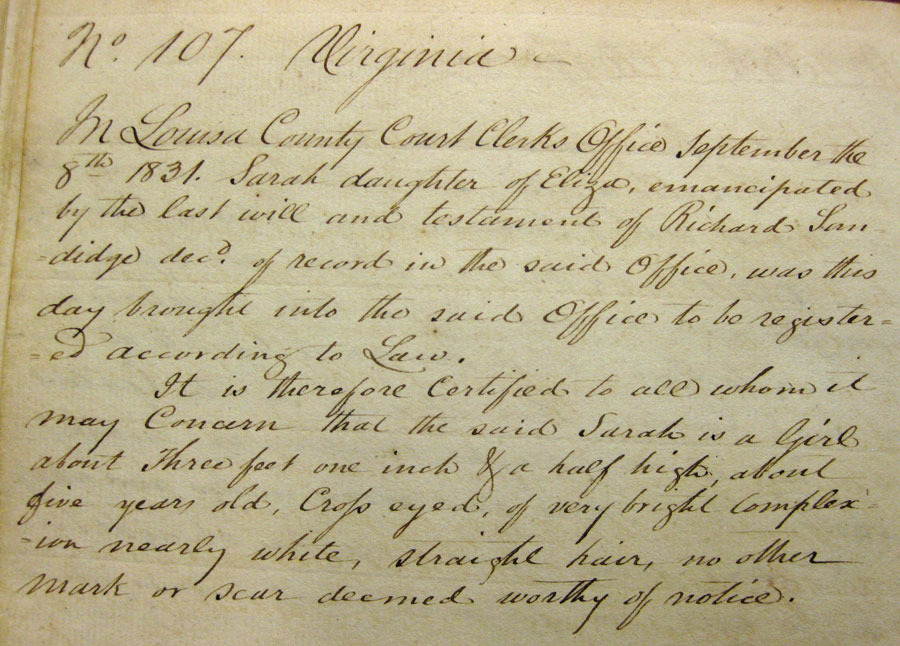 No. 107. Virginia
In Louisa County Court Clerks Office September the
8th 1831. Sarah daughter of Eliza, emancipated
by the last will and testament of Richard San-
-didge decd. of record in the said Office, was this
day brought into the said Office to be register=
=ed according to Law.
It is therefore Certified to all whom it
may Concern that the said Sarah is a Girl
about Three feet one inch & a half high, about
five years old, Cross eyed, of very bright Complex-
-ion nearly white, straight hair, no other
mark or scar deemed worthy of notice.